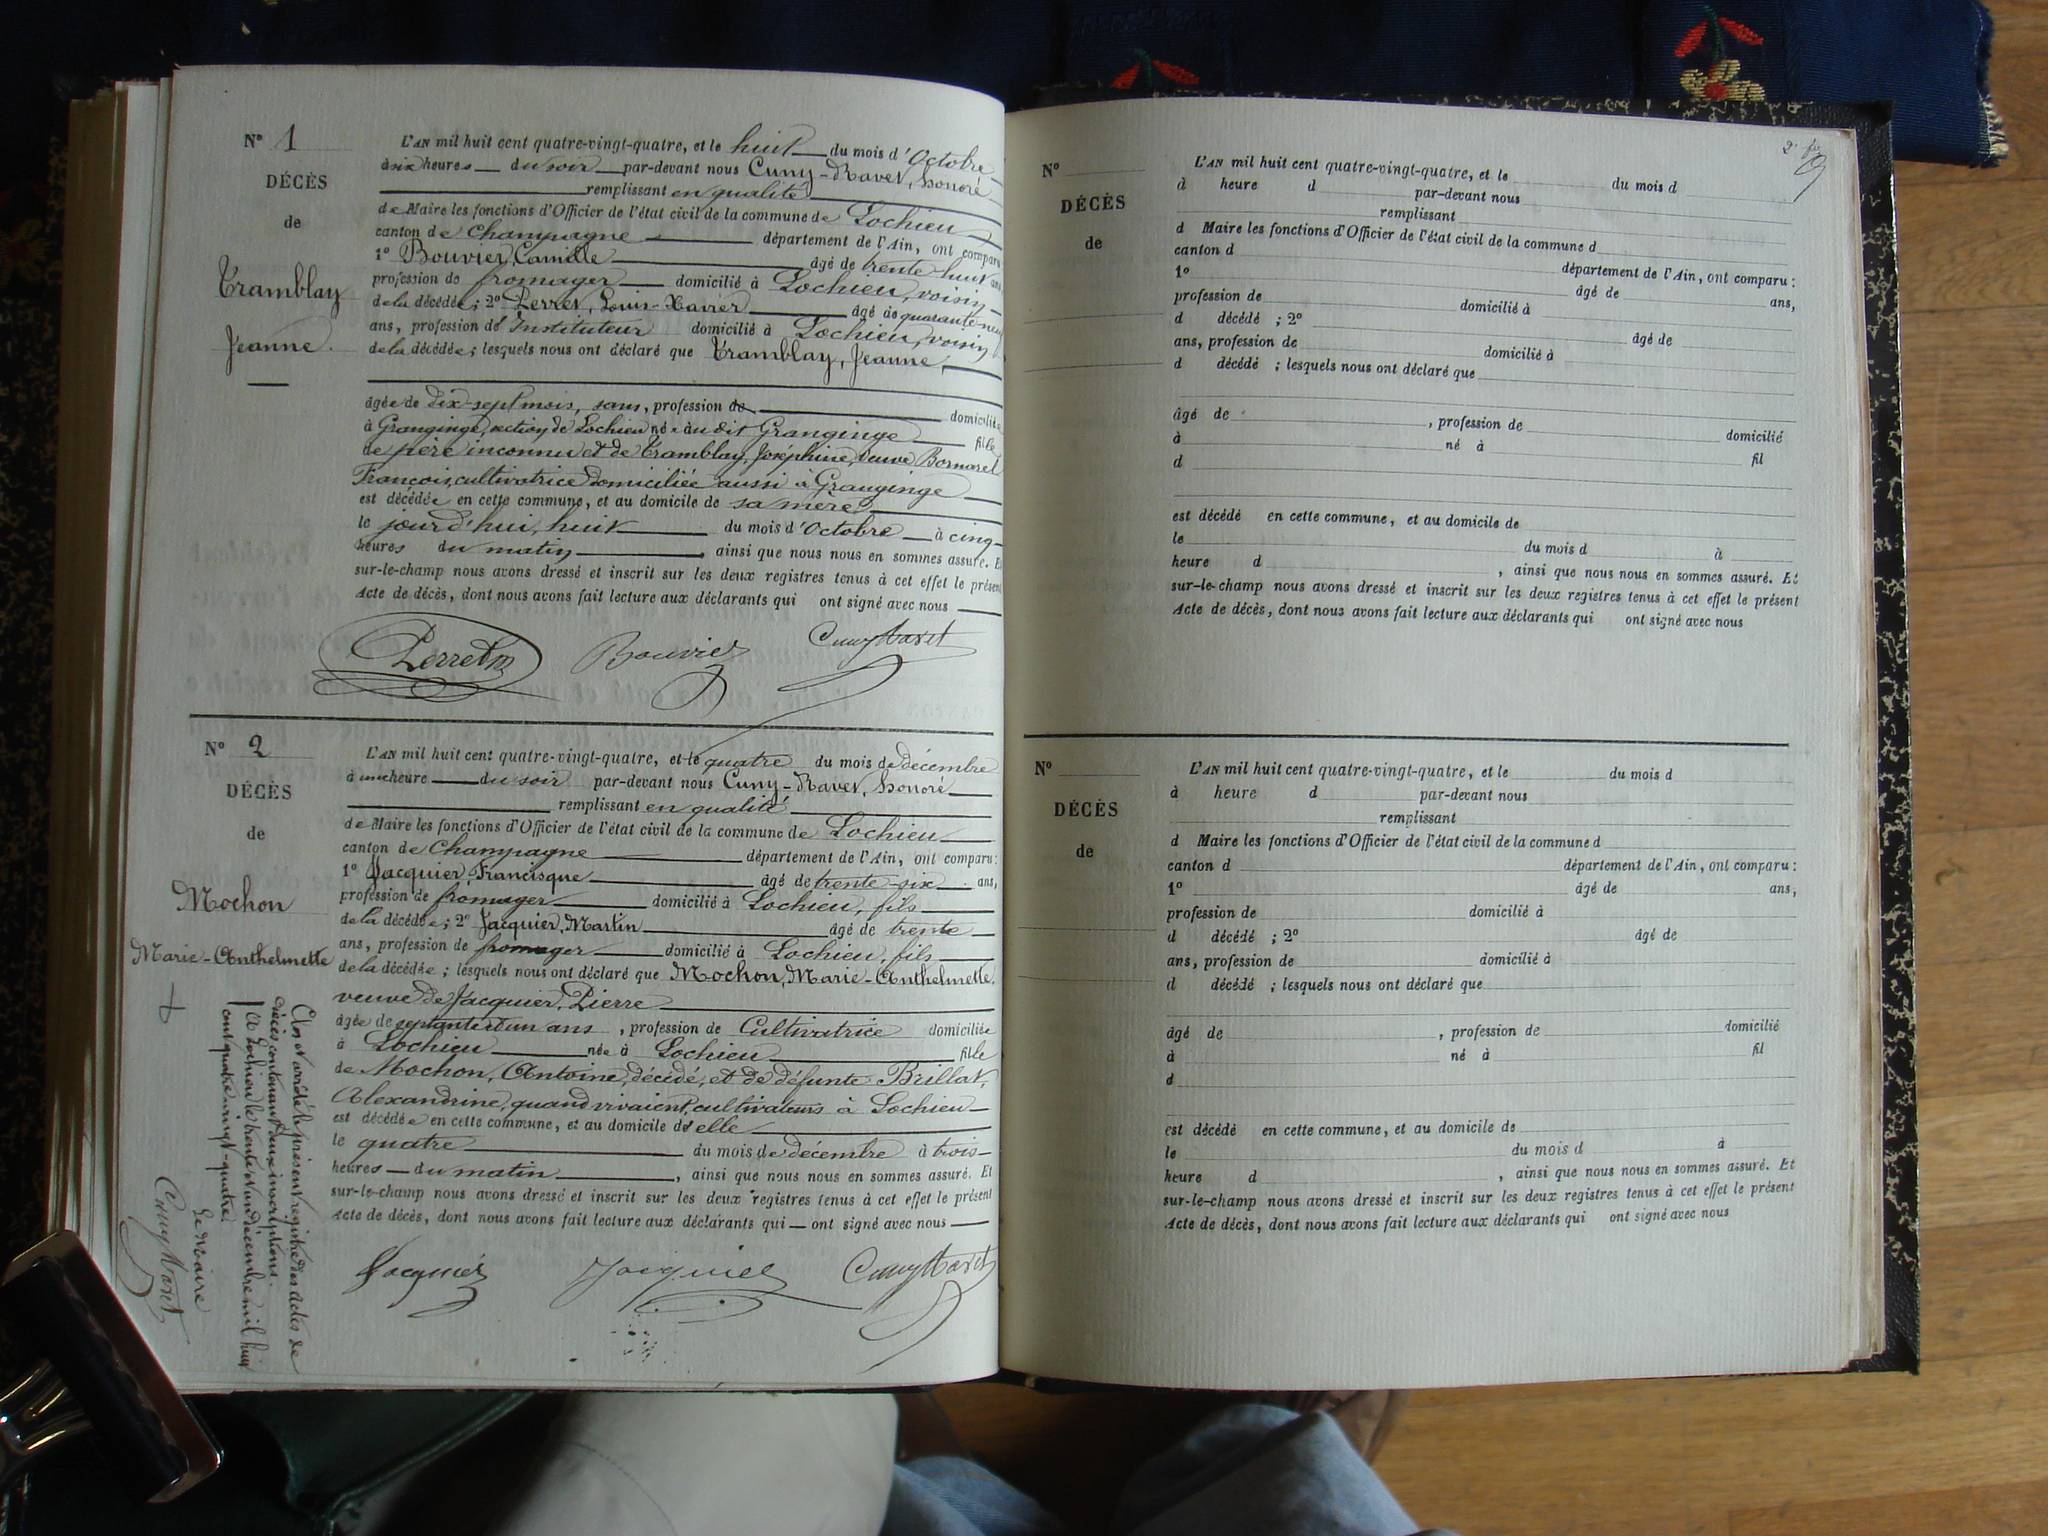 N° 1
DÉCÈS
de
Tramblay
Jeanne.
L'AN mil huit cent quatre-vingt-quatre, et le huit du mois d'Octobre,
à six heures du soir par-devant nous Cuny-Ravet, Honoré
remplissant en qualité
de Maire les fonctions d'Officier de l'état civil de la commune de Lochieu
canton de Champagne département de l'Ain, ont comparu
1° Bouvier, Camille âgé de trente-huit ans
profession de fromager domicilié à Lochieu, voisin
de la décédée; 2° Perret, Louis-Xavier âgé de quarante-neuf
ans, profession d'Instituteur domicilié à Lochieu, voisin
de la décédée; lesquels nous ont déclaré que Tramblay, Jeanne,
âgée de dix-sept mois, sans, profession de domiciliée
à Granginge, section de Lochieu née au dit Granginge fille
de père inconnu et de Tramblay, Joséphine, veuve Bornarel
François, cultivatrice domiciliée aussi à Granginge
est décédée en cette commune, et au domicile de sa mère
le jourd'hui, huit du mois d'Octobre à cinq
heures du matin, ainsi que nous nous en sommes assuré. Et
sur-le-champ nous avons dressé et inscrit sur les deux registres tenus à cet effet le présent
Acte de décès, dont nous avons fait lecture aux déclarants qui ont signé avec nous
Perret Bouvier Cuny Ravet
N° 2
DÉCÈS
de
Mochon
Marie-Anthelmette
L'AN mil huit cent quatre-vingt-quatre, et le quatre du mois de décembre
à une heure du soir par-devant nous Cuny-Ravet, Honoré
remplissant en qualité
de Maire les fonctions d'Officier de l'état civil de la commune de Lochieu
canton de Champagne département de l'Ain, ont comparu:
1° Jacquier, Francisque âgé de trente-six ans,
profession de fromager domicilié à Lochieu, fils
de la décédée; 2° Jacquier, Martin âgé de trente
ans, profession de fromager domicilié à Lochieu, fils
de la décédée; lesquels nous ont déclaré que Mochon, Marie-Anthelmette,
veuve de Jacquier, Pierre
âgée de septante et un ans, profession de Cultivatrice domiciliée
à Lochieu née à Lochieu fille
de Mochon, Antoine, décédé, et de défunte Brillat,
Alexandrine, quand vivaient, cultivateurs à Lochieu
est décédée en cette commune, et au domicile d'elle
le quatre du mois de décembre à trois
heures du matin, ainsi que nous nous en sommes assuré. Et
sur-le-champ nous avons dressé et inscrit sur les deux registres tenus à cet effet le présent
Acte de décès, dont nous avons fait lecture aux déclarants qui ont signé avec nous
Jacquier Jacquier Cuny Ravet
Clos et arrêté le présent registre des actes de
décès contenant deux inscriptions.
à Lochieu le trente et un décembre mil huit
cent quatre-vingt-quatre
Le Maire
Cuny Ravet
N°
DÉCÈS
de
L'AN mil huit cent quatre-vingt-quatre, et le du mois d
à heure d par-devant nous
remplissant
d Maire les fonctions d'Officier de l'état civil de la commune d
canton d département de l'Ain, ont comparu:
1° âgé de ans,
profession de domicilié à
d décédé ; 2° âgé de
ans, profession de domicilié à
d décédé ; lesquels nous ont déclaré que
âgé de , profession de domicilié
à né à fil
d
est décédé en cette commune, et au domicile de
le du mois d à
heure d , ainsi que nous nous en sommes assuré. Et
sur-le-champ nous avons dressé et inscrit sur les deux registres tenus à cet effet le présent
Acte de décès, dont nous avons fait lecture aux déclarants qui ont signé avec nous
N°
DÉCÈS
de
L'AN mil huit cent quatre-vingt-quatre, et le du mois d
à heure d par-devant nous
remplissant
d Maire les fonctions d'Officier de l'état civil de la commune d
canton d département de l'Ain, ont comparu:
1° âgé de ans,
profession de domicilié à
d décédé ; 2° âgé de
ans, profession de domicilié à
d décédé ; lesquels nous ont déclaré que
âgé de , profession de domicilié
à né à fil
d
est décédé en cette commune, et au domicile de
le du mois d à
heure d , ainsi que nous nous en sommes assuré. Et
sur-le-champ nous avons dressé et inscrit sur les deux registres tenus à cet effet le présent
Acte de décès, dont nous avons fait lecture aux déclarants qui ont signé avec nous